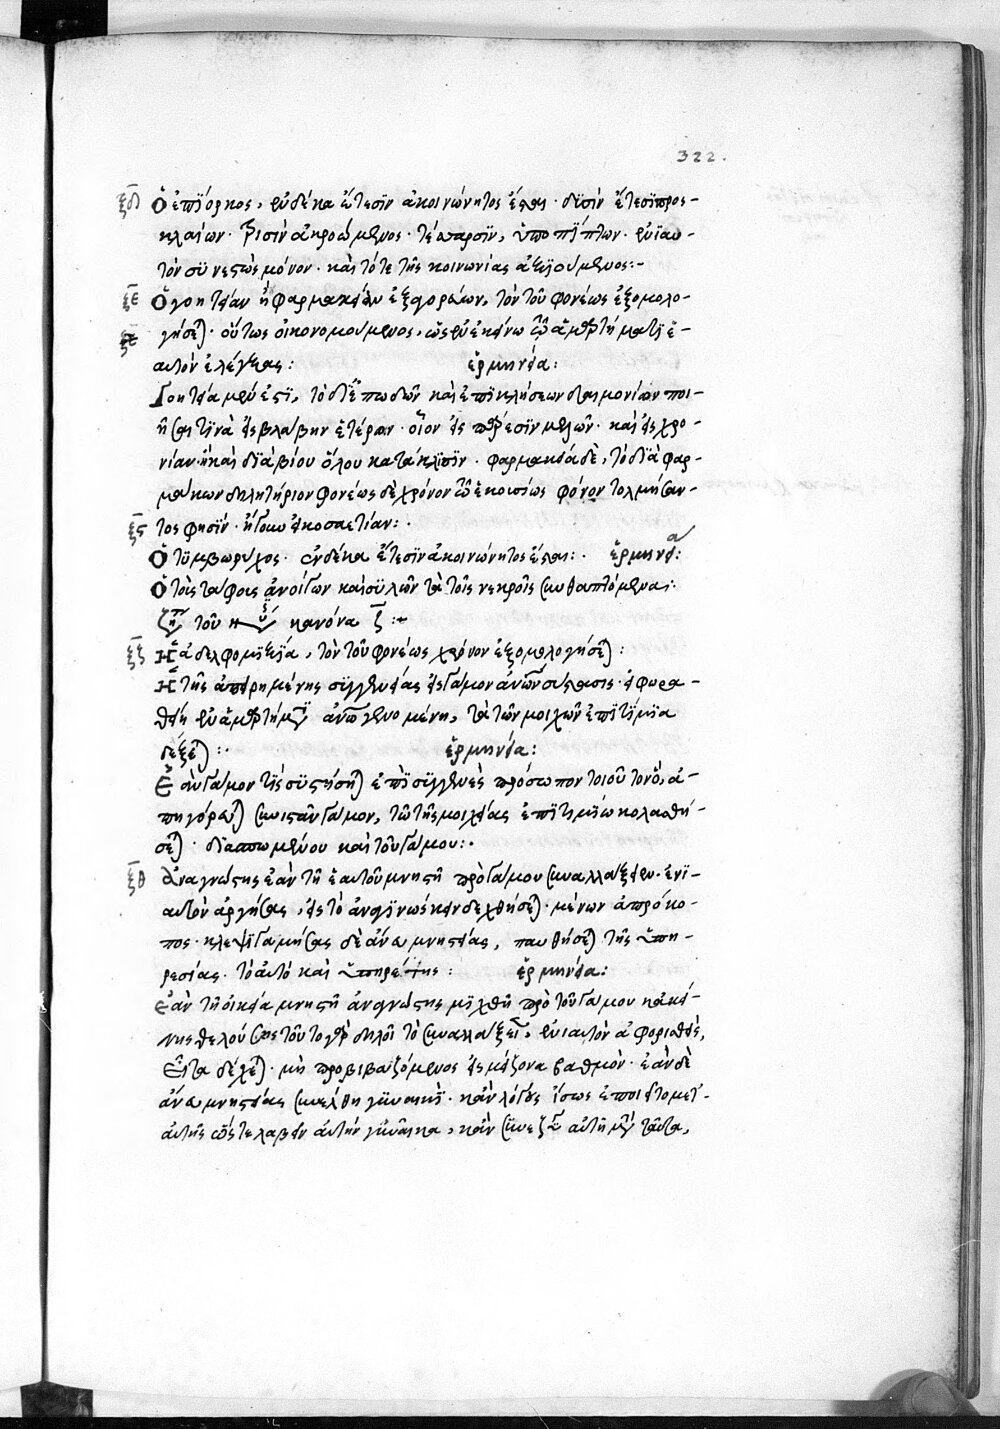 322.
ξδ Ὁ ἐπίορκος, ἐν δέκα ἔτεσιν ἀκοινώνητος ἔσται· δυσὶν ἔτεσι προσ-
κλαίων· τρισὶν ἀκροώμενος· τέσσαρσιν, ὑποπίπτων· ἐνιαυ-
τὸν συνεστὼς μόνον· καὶ τότε τῆς κοινωνίας ἀξιούμενος:-
ξε Ὁ γοητείαν ἢ φαρμακείαν ἐξαγορεύων, τὸν τοῦ φονέως ἐξομολο-
γήσεται· οὕτως οἰκονομούμενος, ὡς ἐν ἐκείνῳ τῷ ἁμαρτήματι ἑ-
αυτὸν ἐλέγξας: ἑρμηνεία:
Γοητεία μέν ἐστι, τὸ δι' ἐπωδῶν καὶ ἐπικλήσεων δαιμονίων ποι-
ῆσαι τινὰ εἰς βλάβην ἑτέρων· οἷον εἰς πάρεσιν μελῶν· καὶ εἰς χρο-
νίαν ἢ καὶ διὰ βίου ὅλου κατάκλισιν· φαρμακεία δὲ, τὸ διὰ φαρ-
μάκων δηλητήριον φονέως δὲ χρόνον τῶ ἑκουσίως φόνον τολμήσαν-
τος φησίν· ἤγουν εἰκοσαετίαν:·
ξς Ὁ τυμβωρύχος· ἐν δέκα ἔτεσιν ἀκοινώνητος ἔσται:· ἑρμηνεία:
Ὁ τοὺς τάφους ἀνοίγων καὶ συλῶν τὰ τοῖς νεκροῖς συνθαπτόμενα:
ζήτει τοῦ νύσης κανόνα ζ:-
ξζ Ἡ ἀδελφομιξία, τὸν τοῦ φονέως χρόνον ἐξομολογήσεται:
Ἡ τῆς ἀπειρημένης συγγενείας εἰς γάμον ἀνθρώπων σύστασις· εἰ φωρα-
θείη ἐν ἁμαρτήμασιν ἀνθρώπων γενομένη, τὰ τῶν μοιχῶν ἐπιτίμια
δέξεται:· ἑρμηνεία:
Ἐὰν γάμον τίς συστήσηται ἐπὶ συγγενὲς πρόσωπον τοιοῦτον ὃ, ἀ-
πηγόρευται συνιστᾶν γάμον, τῶ τῆς μοιχείας ἐπιτιμίω κολασθή-
σεται· διασπωμένου καὶ τοῦ γάμου:·
ξθ Ἀναγνώστης ἐὰν τῇ ἑαυτοῦ μνηστῇ πρὸ γάμου συναλλάξειεν· ἐνι-
αυτὸν ἀργήσας, εἰς τὸ ἀναγινώσκειν δεχθήσεται· μένων ἀπρόκο-
πος· κλεψιγαμήσας δὲ ἄνευ μνηστείας, παυθήσεται τῆς ὑπη-
ρεσίας· τὸ αὐτὸ καὶ ὑπηρέτης: ἑρμηνεία:
Ἐὰν τῇ οἰκεία μνηστῇ ἀναγνώστης μιχθῇ πρὸ τοῦ γάμου κἀκεί-
νης θελούσης τοῦτο γὰρ δηλοῖ τὸ συναλλάξειεν, ἐνιαυτὸν ἀφορισθεὶς,
εἶτα δέχεται· μὴ προβιβαζόμενος εἰς μείζονα βαθμόν· ἐὰν δὲ
ἄνευ μνηστείας συνέλθη γυναικὶ· κἂν λόγους ἴσως ἐποιεῖτο μετ'
αὐτῆς ὥστε λαβεῖν αὐτὴν γυναῖκα, κἂν αὐτῆ μετὰ ταῦτα,